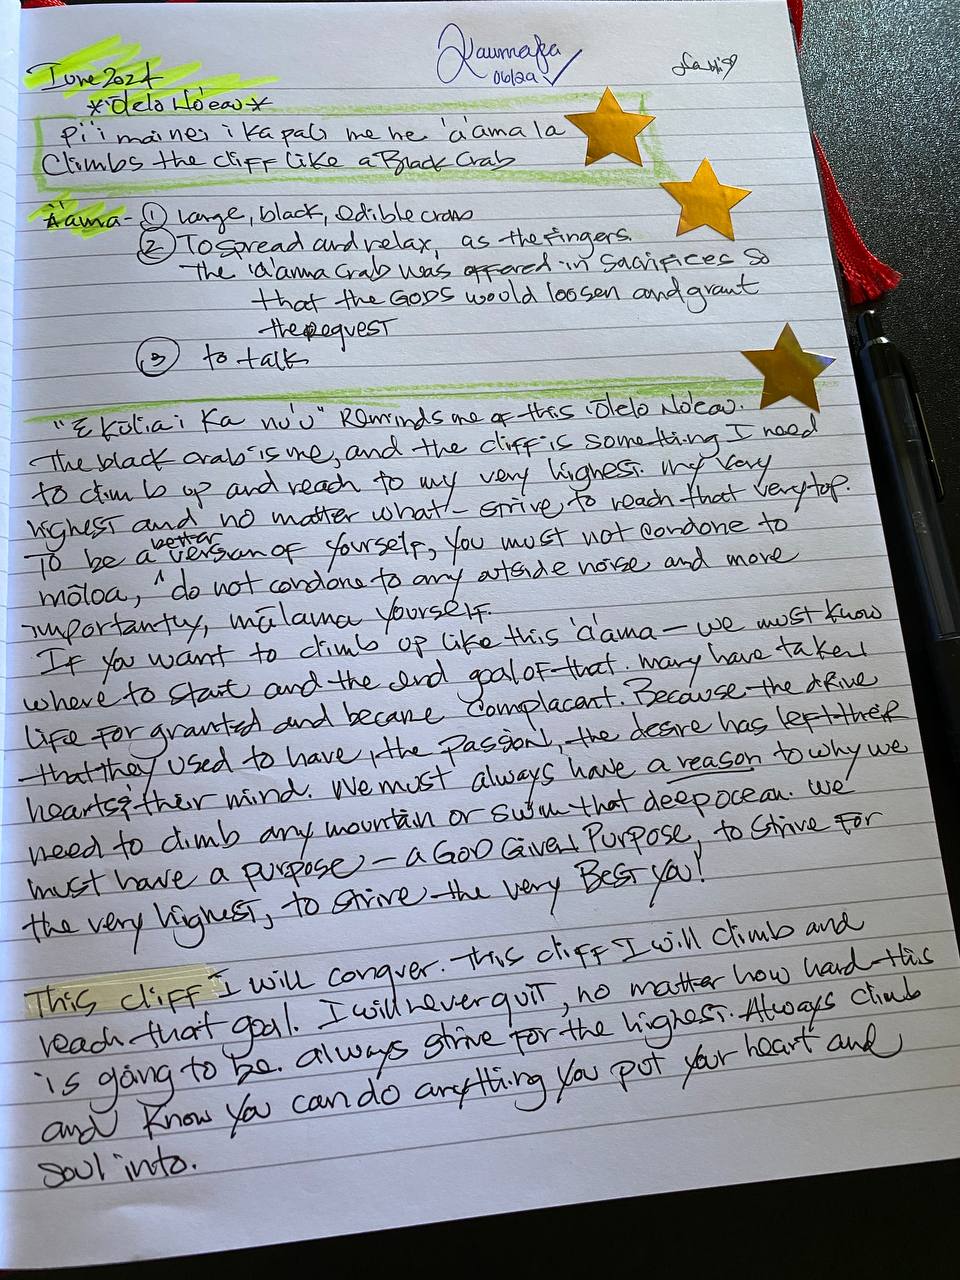 Kaumaka
06/29
June 2024
*Ōlelo No'eau*
Pi'i mai nei i ka pali me he 'a'ama la
Climbs the cliff like a Black Crab
A'ama - ① Large, black, edible crabs
② To spread and relax, as the fingers.
The 'a'ama crab was offered in sacrifices so
that the GODS would loosen and grant
the request
③ to talk
"E kūlia i ka nu'u" Reminds me of this 'Ōlelo No'eau.
The black crab is me, and the cliff is something I need
to climb up and reach to my very highest. My very
highest and no matter what - strive to reach that very top.
To be a better version of yourself, you must not condone to
mōloa, ^ do not condone to any outside noise and more
importantly, mālama yourself.
If you want to climb up like this 'a'ama - we must know
where to start and the end goal of that. Many have taken
life for granted and became complacent. Because the drive
that they used to have, the passion, the desire has left their
hearts & their mind. We must always have a reason to why we
need to climb any mountain or swim that deep ocean. We
must have a purpose - a GOD Given Purpose, to strive for
the very highest, to strive the very Best you!
This cliff I will conquer. This cliff I will climb and
reach that goal. I will never quit, no matter how hard this
is going to be. Always strive for the highest. Always climb
and know you can do anything you put your heart and
soul into.